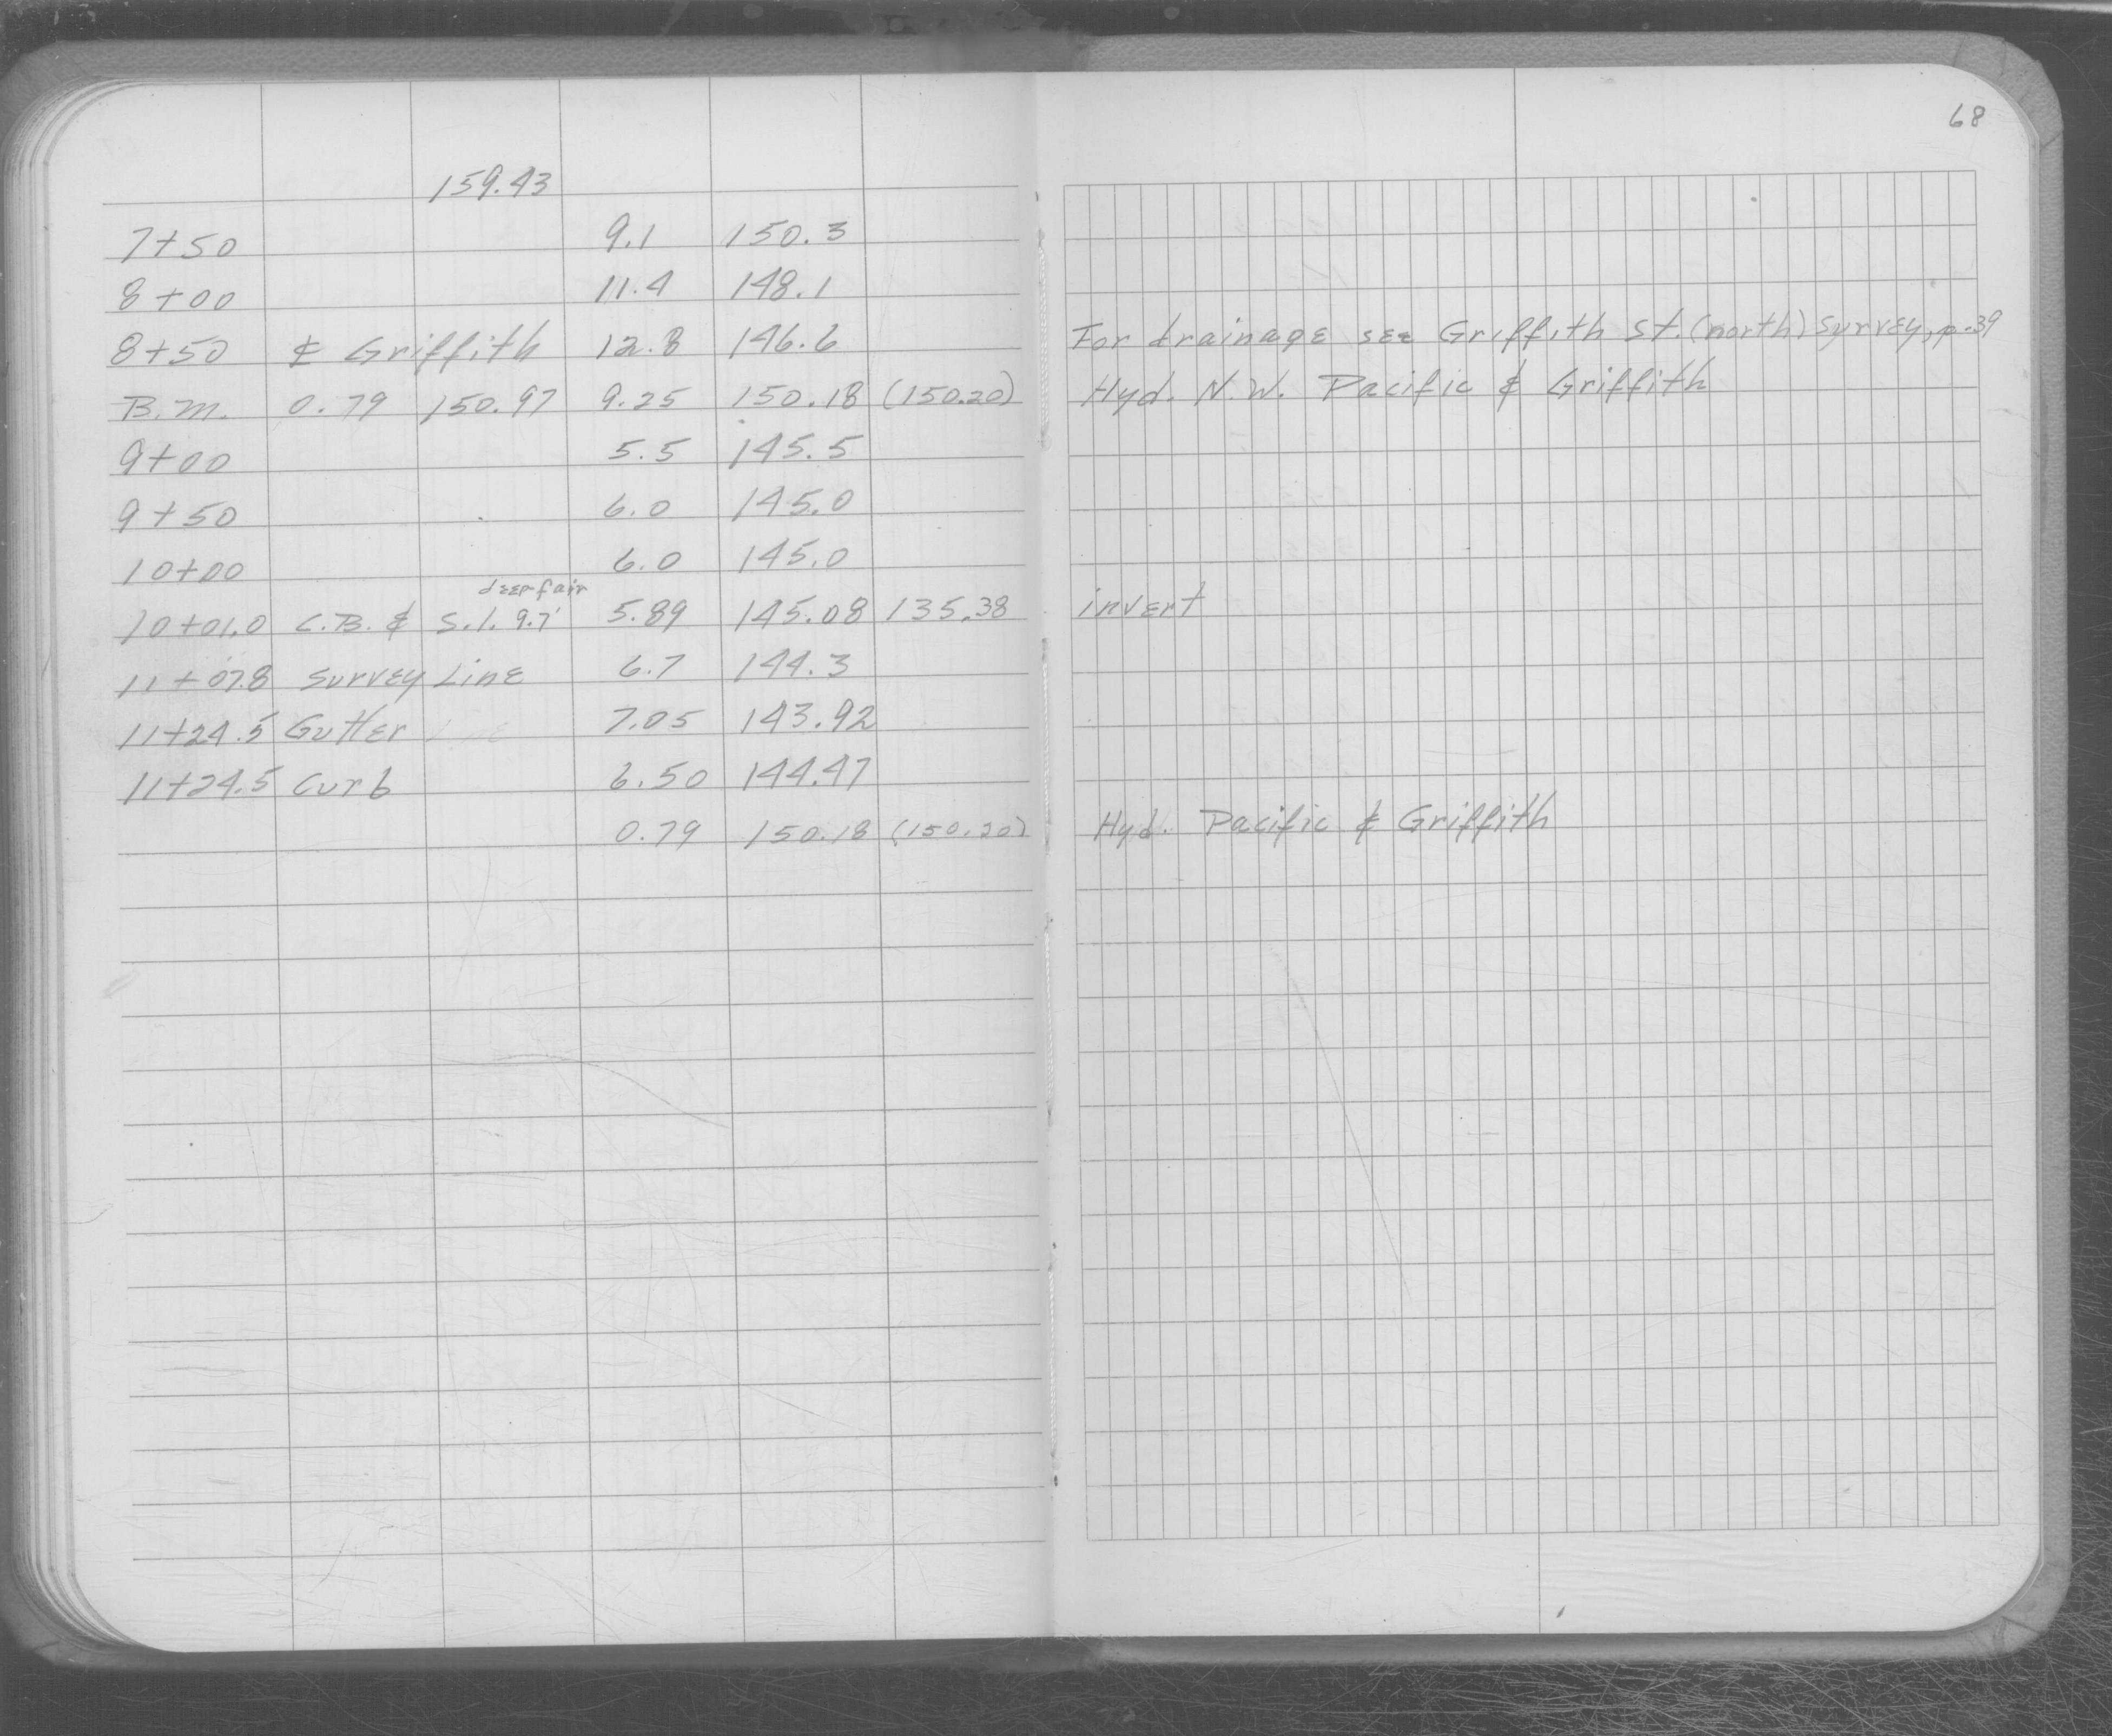 68
159.43
7+50 9.1 150.3
8+00 11.4 148.1
8+50 ⅊ Griffith 12.8 146.6 For drainage see Griffith St. (north) Survey, p. 39
B.M. 0.79 150.97 9.25 150.18 (150.20) Hyd. N.W. Pacific & Griffith
9+00 5.5 145.5
9+50 6.0 145.0
10+00 6.0 145.0
deep fair
10+01.0 C.B. & S.I. 9.7' 5.89 145.08 135.38 invert
11+07.8 Survey Line 6.7 144.3
11+24.5 Gutter 7.05 143.92
11+24.5 Curb 6.50 144.47
0.79 150.18 (150.20) Hyd. Pacific & Griffith